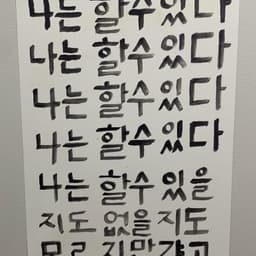 나는 할수있다
나는 할수있다
나는 할수있다
나는 할수있다
나는 할수 있을
지도 없을지도
모르지만